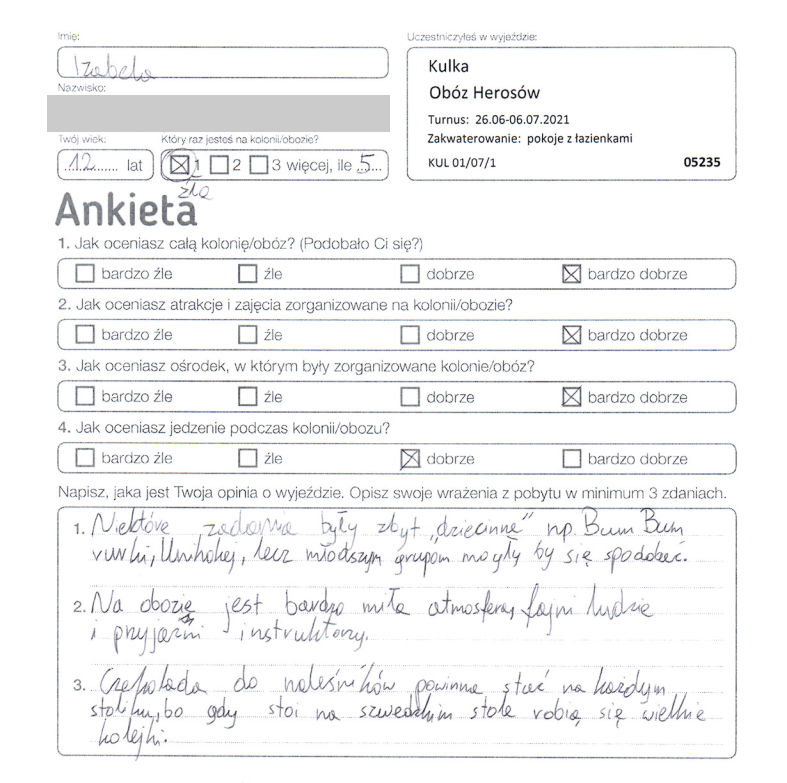 Imię:
Izabela
Nazwisko:
Uczestniczyłeś w wyjeździe:
Kulka
Obóz Herosów
Turnus: 26.06-06.07.2021
Zakwaterowanie: pokoje z łazienkami
KUL 01/07/1 05235
Twój wiek:
12 lat
Który raz jesteś na kolonii/obozie?
1 2 3 więcej, ile 5
źle
Ankieta
1. Jak oceniasz całą kolonię/obóz? (Podobało Ci się?)
bardzo źle źle dobrze bardzo dobrze
2. Jak oceniasz atrakcje i zajęcia zorganizowane na kolonii/obozie?
bardzo źle źle dobrze bardzo dobrze
3. Jak oceniasz ośrodek, w którym były zorganizowane kolonie/obóz?
bardzo źle źle dobrze bardzo dobrze
4. Jak oceniasz jedzenie podczas kolonii/obozu?
bardzo źle źle dobrze bardzo dobrze
Napisz, jaka jest Twoja opinia o wyjeździe. Opisz swoje wrażenia z pobytu w minimum 3 zdaniach.
1. Niektóre zadania były zbyt „dziecinne" np. Bum Bum
rurki, Unihokej, lecz młodszym grupom mogły by się spodobać.
2. Na obozie jest bardzo miła atmosfera, fajni ludzie
i przyjaźni instruktorzy.
3. Czekolada do naleśników powinna stać na każdym
stoliku, bo gdy stoi na szwedzkim stole robią się wielkie
kolejki.